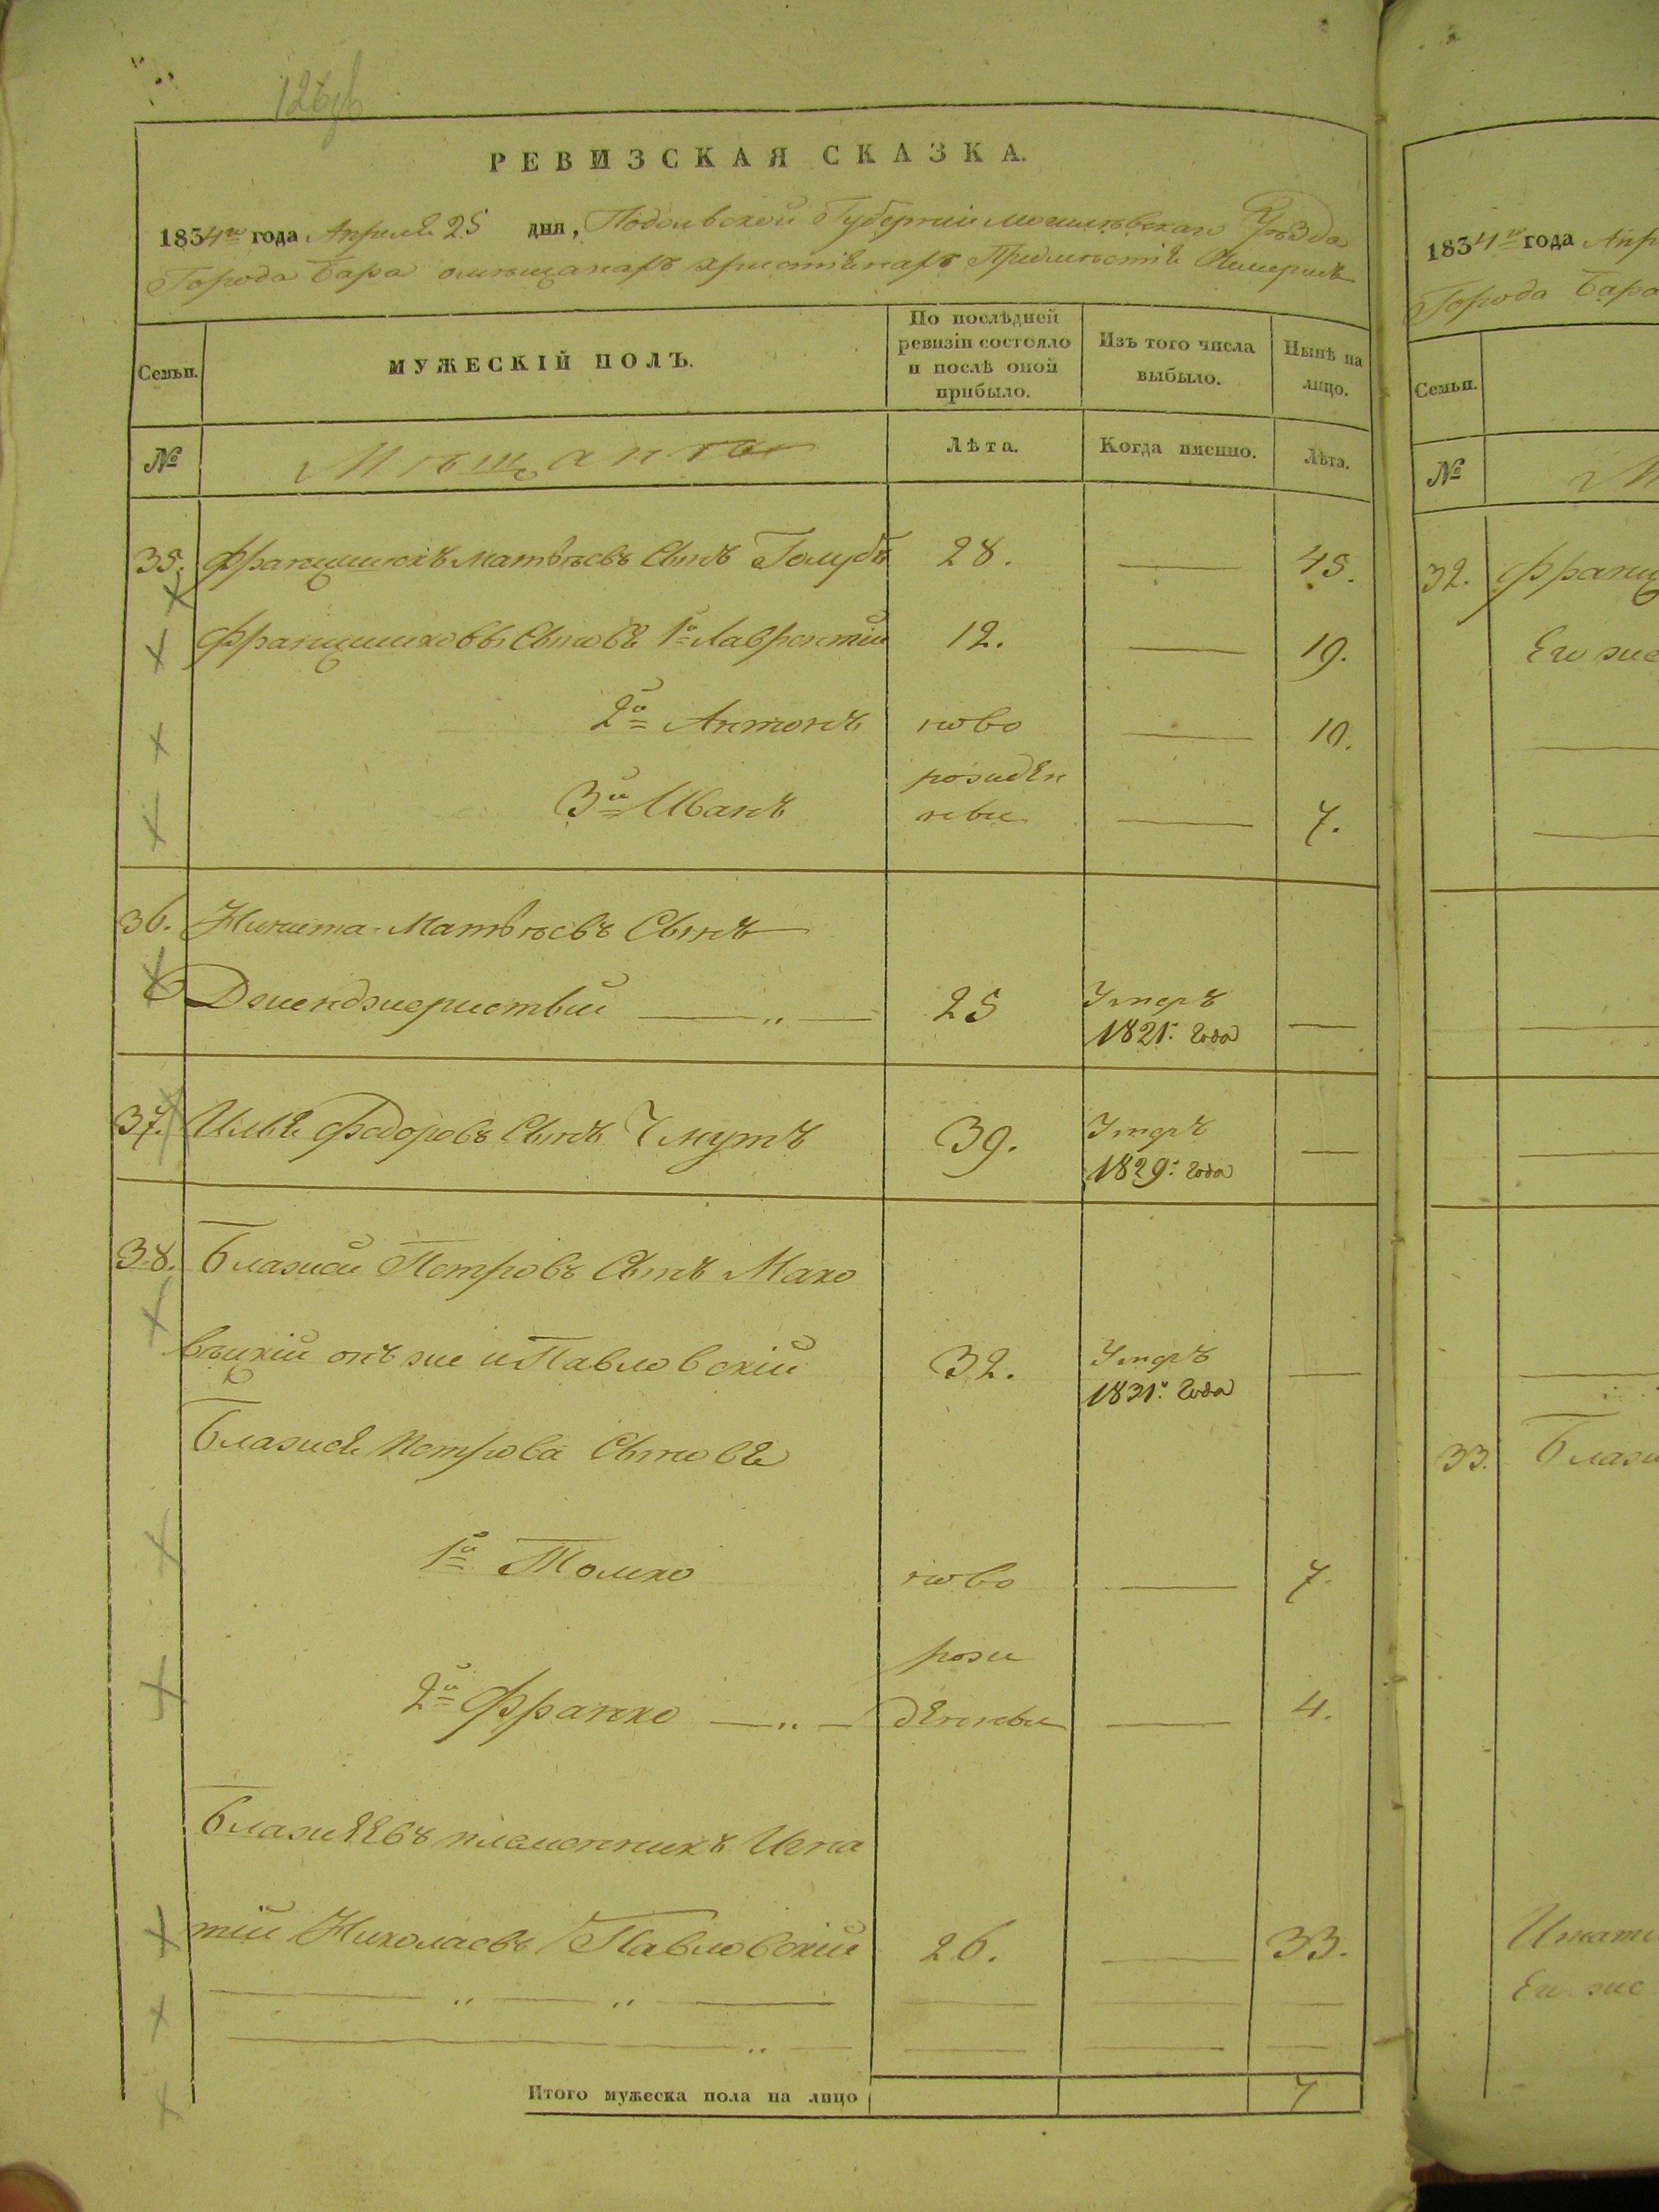 126об
РЕВИЗСКАЯ СКАЗКА.
1834го года Апреля 25 дня, Подольской Губернии Могилевскаго Уѣзда
Города Бара о мещанахъ христіенахъ Придместіе
Семьи.
МУЖЕСКІЙ ПОЛЪ.
По послѣдней ревизіи состояло и послѣ оной прибыло.
Изъ того числа выбыло.
Нынѣ на лицо.
№
Мѣщанъ
Лѣта.
Когда именно.
Лѣта.
35. Францишокъ Матвѣевъ Сынъ Голубъ 28. — 45.
Францишковы Сыновя 1й Лаврентій 12. — 19.
2й Антонъ ново — 10.
рожден
3й Иванъ ные — 7.
36. Никита Матвѣевъ Сынъ
Дженджеристый — „ — 25 Умеръ 1821. года —
37. Илья Федоровъ Сынъ Чмутъ 39. Умеръ 1829. года —
38. Блажей Петровъ Сынъ Мако
вѣцкій онъ же и Павловскій 32. Умеръ 1831. года —
Блажея Петрова Сыновя
1й Томко ново — 7.
рож
2й Франко — „ — денные — 4.
Блажеевъ племенникъ Игна
тій Николаевъ Павловскій 26. — 33.
Итого мужеска пола на лицо 7
1834го года Апр
Города Бара
Семьи.
№
М
32. Франц
Его же
33. Блаж
Игнати
Его же